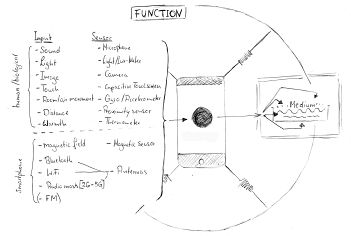 FUNCTION
Input
Sensor
human/biological
- Sound
- Microphone
- Light
- Image
- Camera
- Touch
- Capacitive Touchscreen
- Gyro/Accelerometer
- Distance
- Proximity sensor
- Warmth
- Thermometer
Medium
Smartphone
- magnetic field
- Magnetic Sensor
- Bluetooth
- WiFi
- Antennas
- Radio mash [2G-5G]
(- FM)